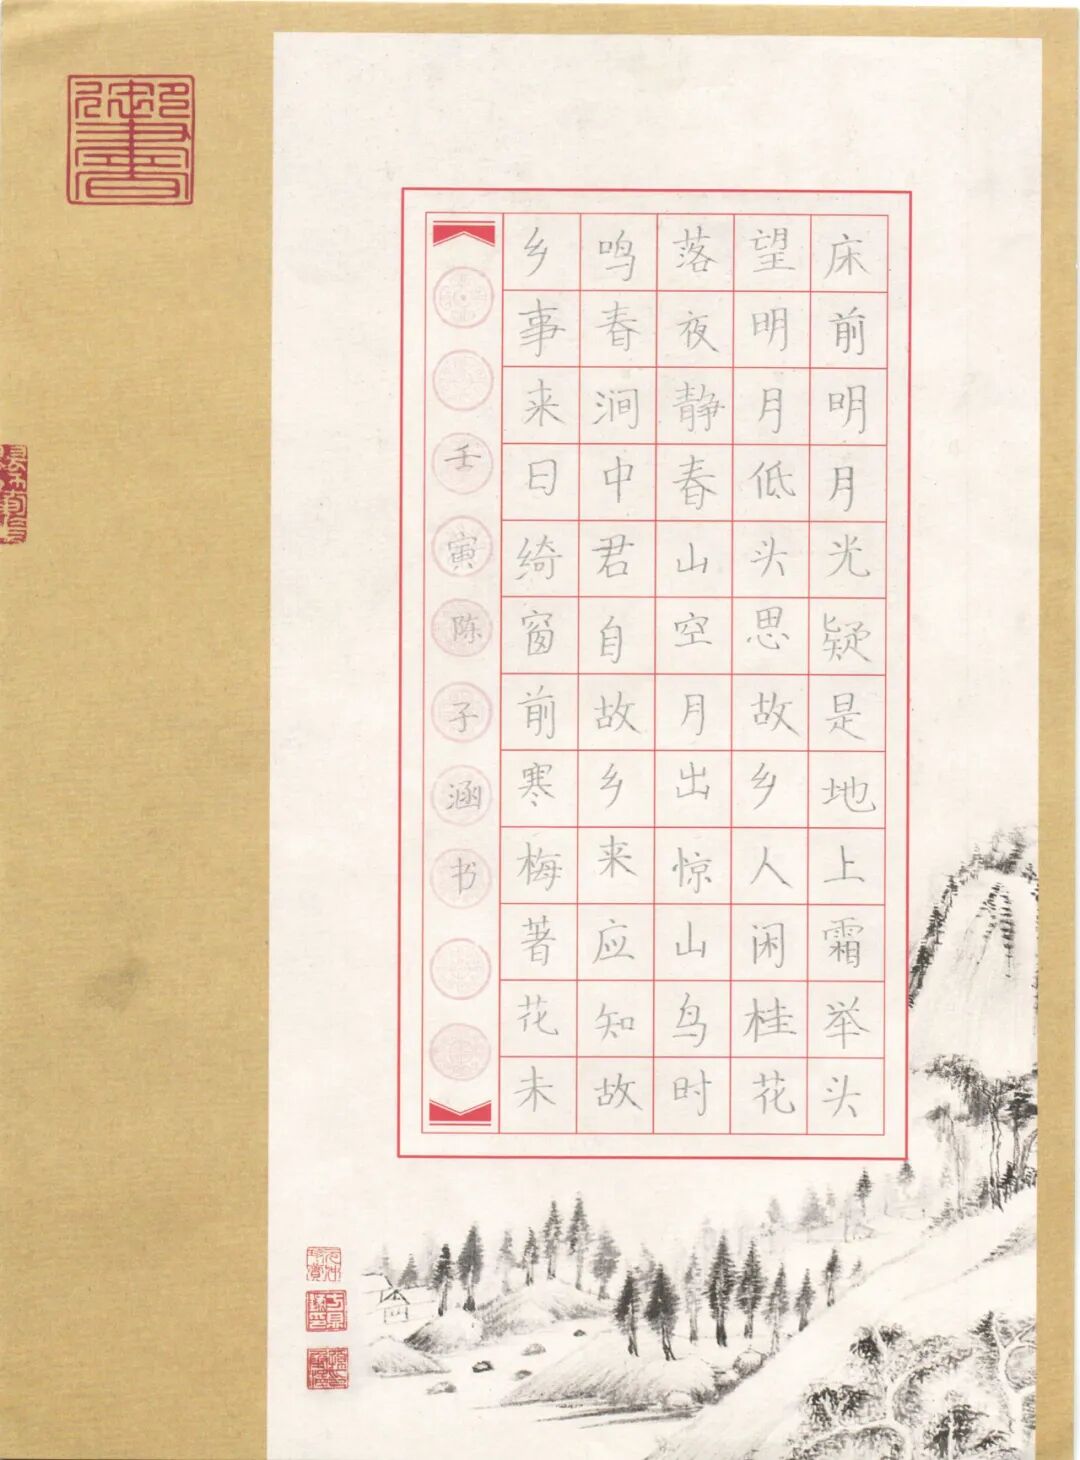 床前明月光疑是地上霜举头
望明月低头思故乡人闲桂花
落夜静春山空月出惊山鸟时
鸣春涧中君自故乡来应知故
乡事来日绮窗前寒梅著花未
壬寅陈子涵书